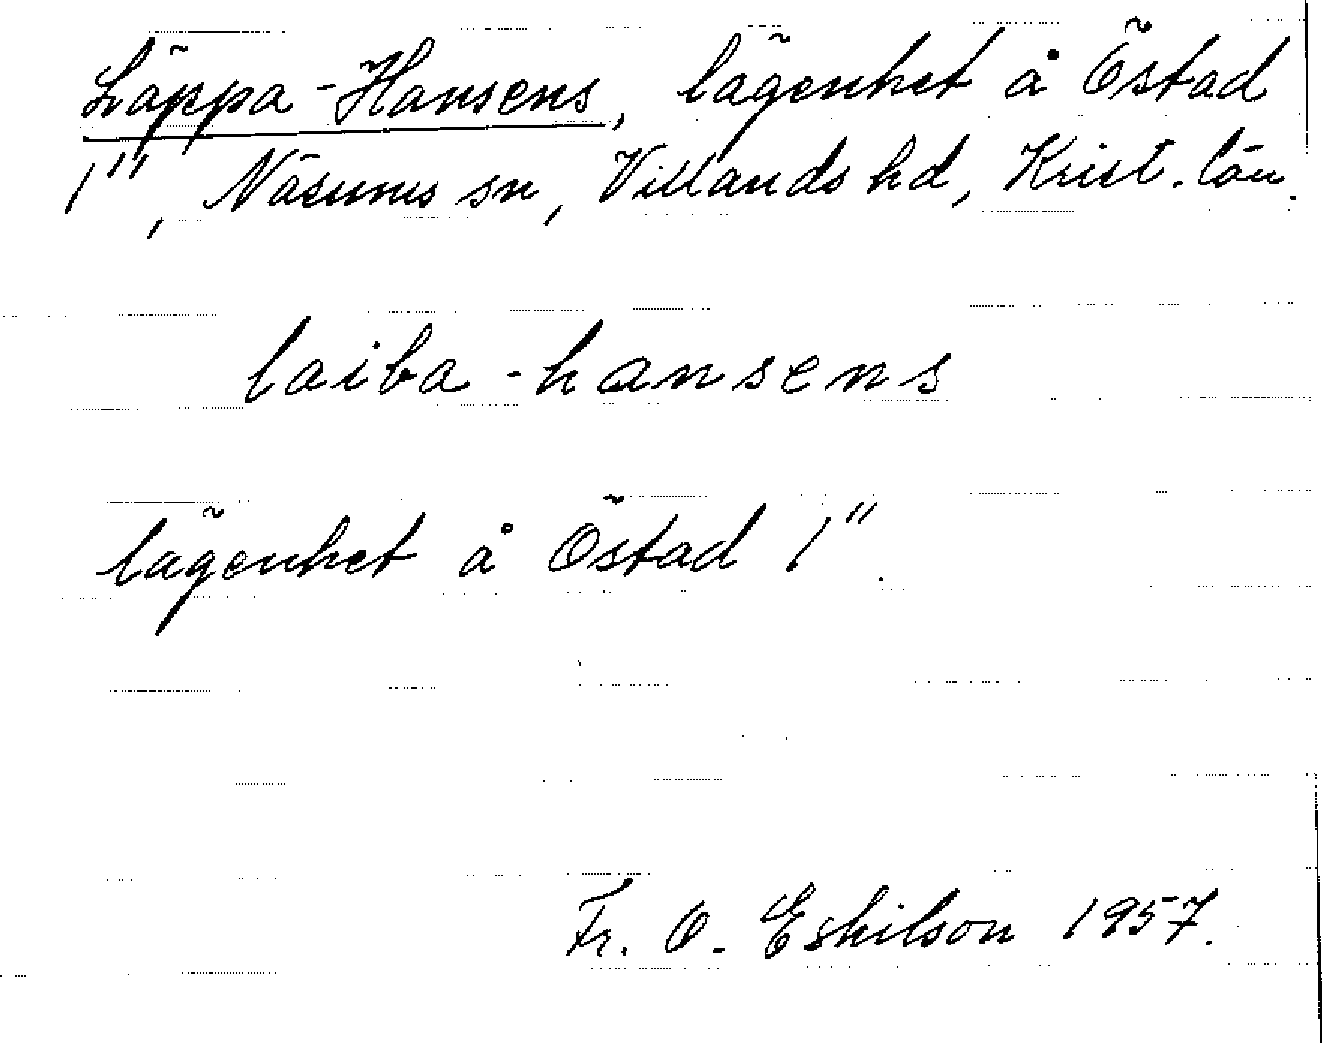 Läppa-Hansens, lägenhet å Östad
1", Näsums sn, Villands hd, Krist. län.
laiba-hansens
lägenhet å Östad 1".
Fr. O. Eskilson 1957.